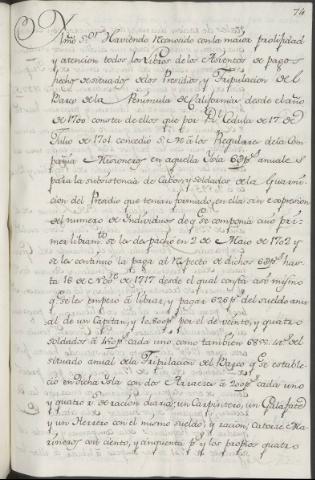 74
Mui Sor. Haviendo Reconosido con la maior prolixidad
y atencion todos los Libros de los Asientos de pagos
hechos de situados de los Presidios, y Tripulacion de el
Barco de la Peninsula de California desde el año
de 1700 consta de ellos que por Rl. Cedula de 17 de
Julio de 1701 concedio S. M. a los Regulares de la Com
pañia Misioneros en aquella Isla 6000 ps. anuales
para la subsistencia de Cabos y soldados de la Guarni
cion del Presidio que tenian formado, en ella sin expresion
del numero de Individuos de qe. se componia cuio pri
mer libramto. se les despachó en 2 de Maio de 1702 y
se les continuó la paga al respecto de dichos ps. has
ta 18 de de 1717 desde el qual consta asi mismo
qe. se les empezó a librar, y pagar ps. del sueldo anu
al de un Capitan, y ps. por el de veinte, y quatro
soldados a ps. cada uno como tambien
situado anual de la Tripulacion del Barco qe. se estable
cio en dicha Isla con dos Arraeces á ps. cada uno
y quatro rs. de racion diaria; un Carpintero, un Calafate
y un Herrero con el mismo sueldo, y racion; catorce Ma
rineros con ciento, y cinquenta ps. y los propios quatro